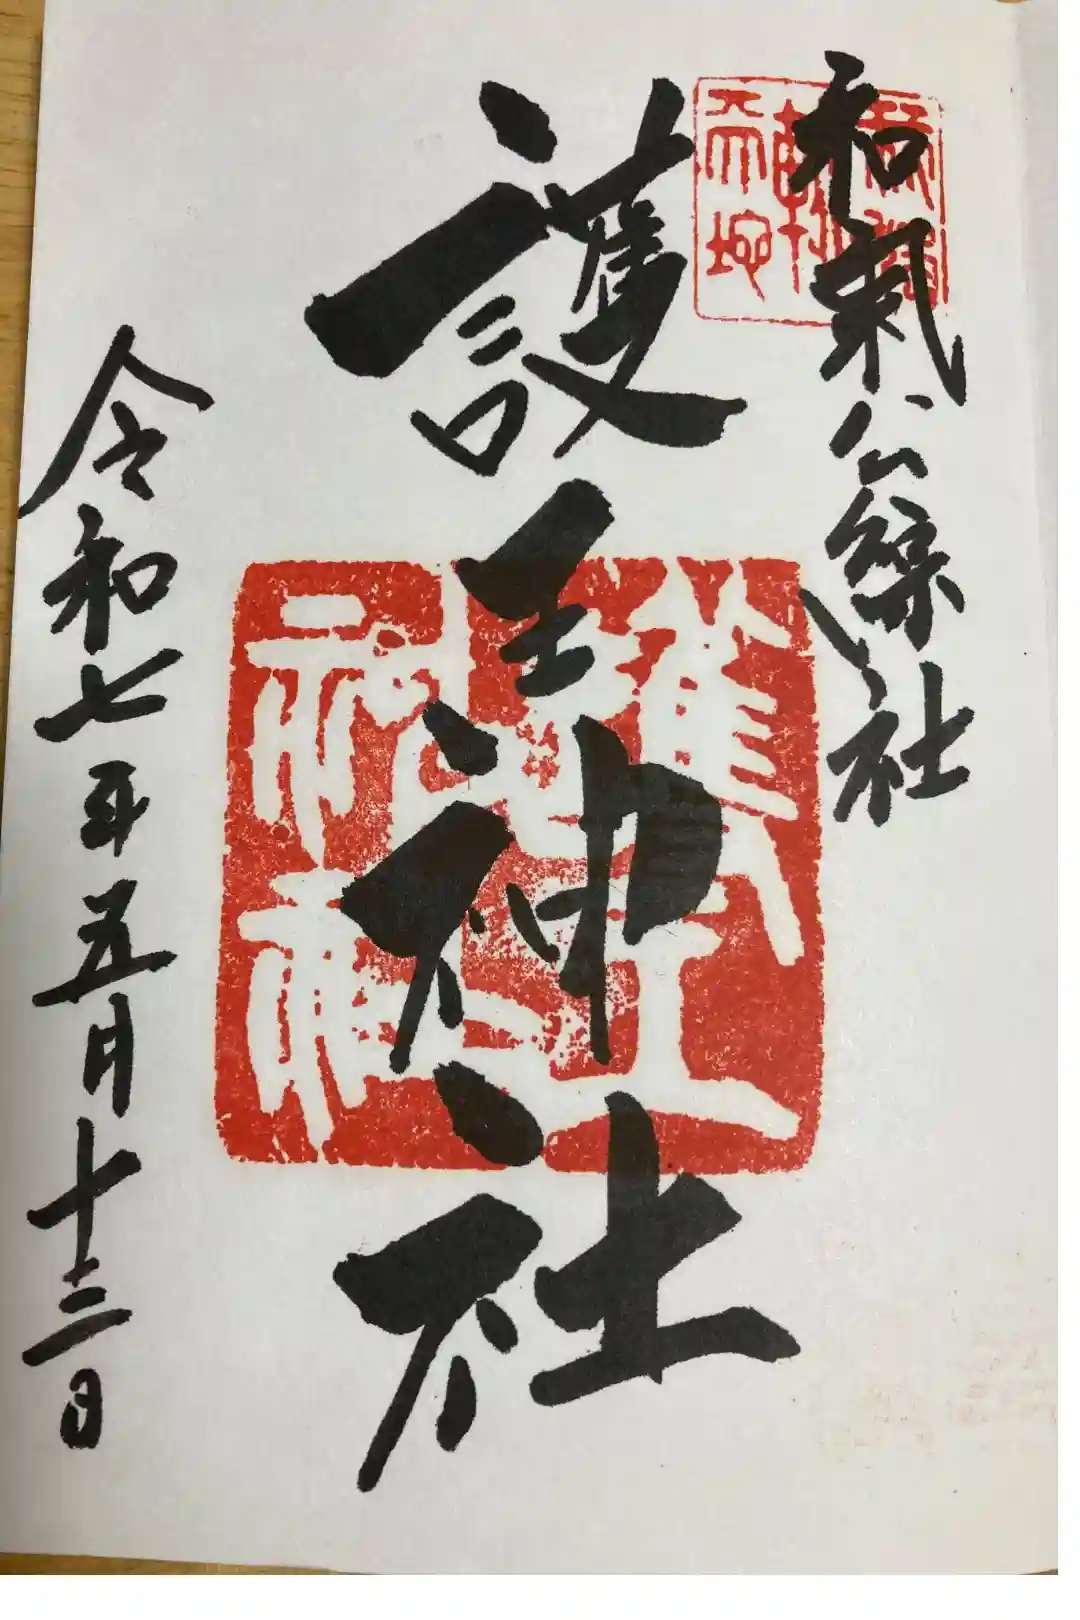 和氣公社
護王神社
護王神社
令和七年五月十三日